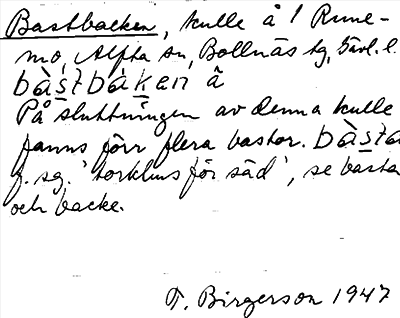 Bastbacken, kulle å 1 Rune-
mo, Alfta sn, Bollnäs tg, Gävl. l.
bàstbàken ã
På sluttningen av denna kulle
fanns förr flera bastor. bàsta
f. sg. 'torkhus för säd', se basta
och backe.
T. Birgerson 1947